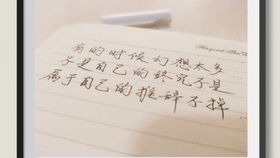 有的时候幻想太多
于是自己的终究于是
属于自己的推辞不掉...